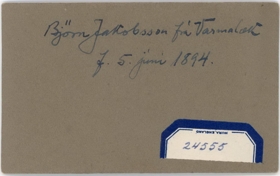 Björn Jakobsson frá Varmalæk
f. 5. júní 1894.
24555